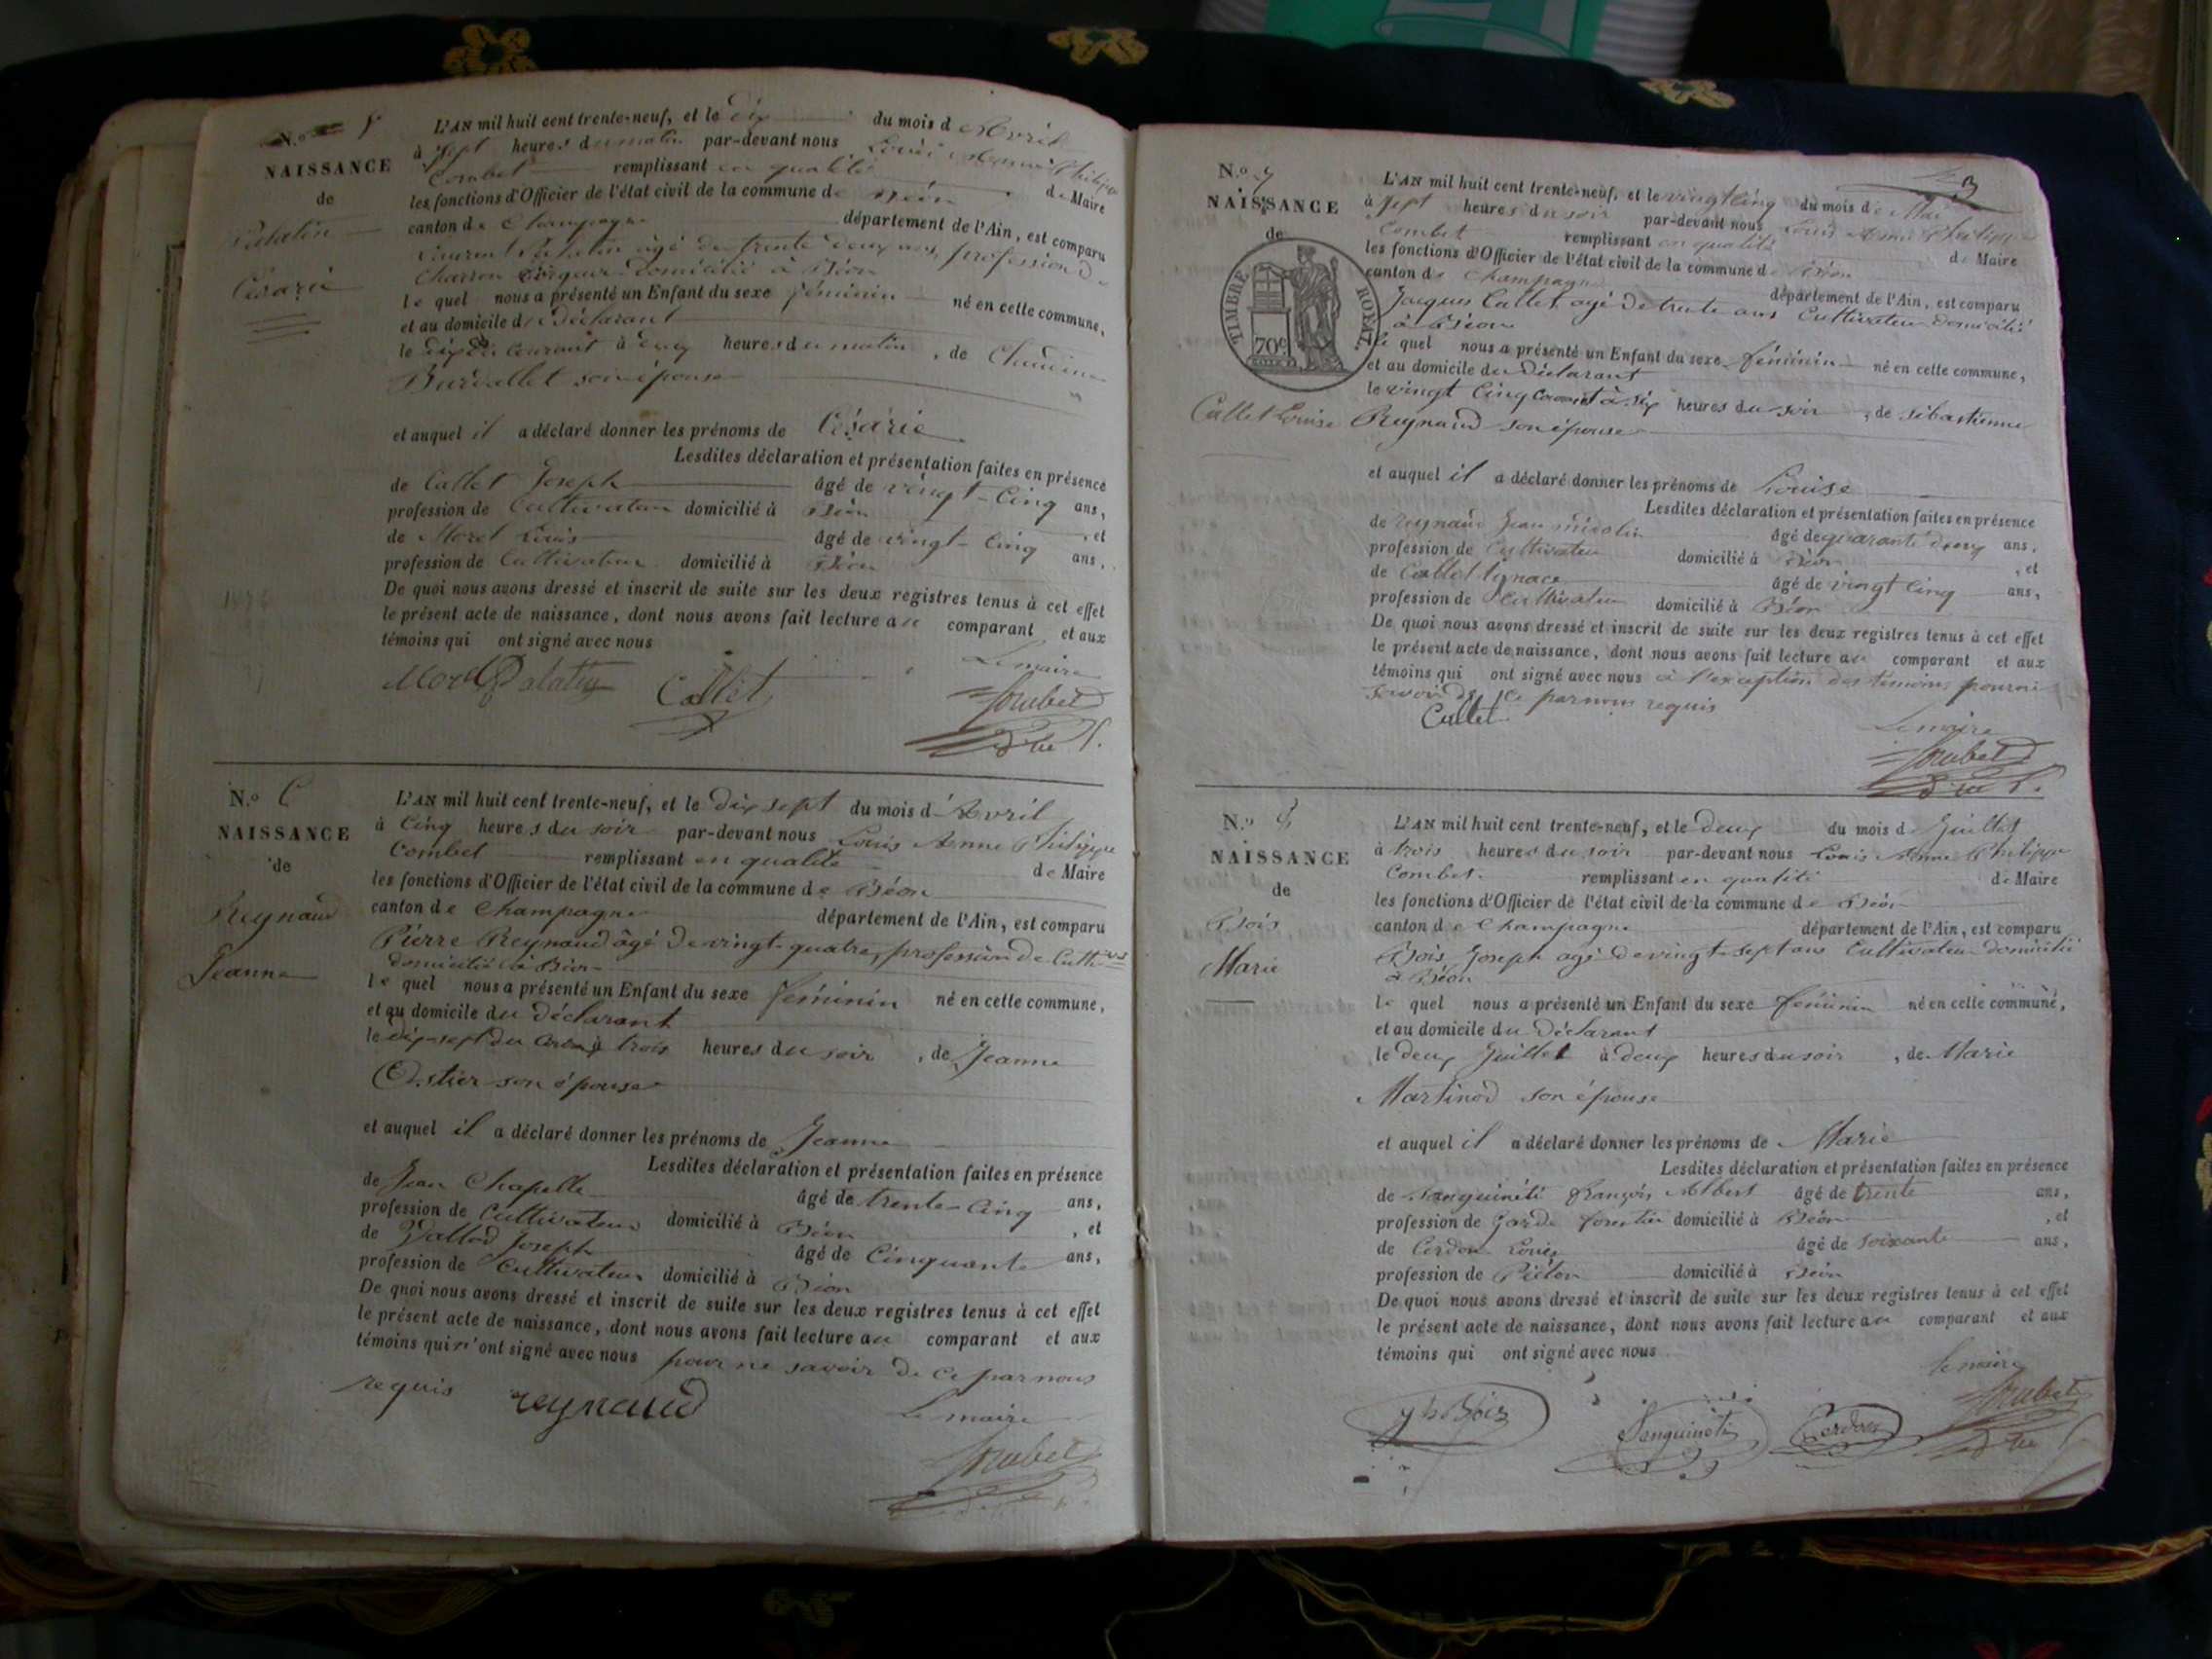 N.o 5
NAISSANCE
de
Palatin
Césarie
L'AN mil huit cent trente-neuf, et le dix du mois d'Avril
à sept heures du matin par-devant nous Louis Anme Philippe
Combet remplissant en qualité de Maire
les fonctions d'Officier de l'état civil de la commune de Béon
canton de Champagne département de l'Ain, est comparu
Laurent Palatin âgé de trente deux ans, profession de
Charron domicilié à Béon
le quel nous a présenté un Enfant du sexe féminin né en cette commune,
et au domicile du Déclarant
le dix du courant à deux heures du matin, de Claudine
son épouse
et auquel il a déclaré donner les prénoms de Césarie
Lesdites déclaration et présentation faites en présence
de Callet Joseph âgé de vingt-Cinq ans,
profession de Cultivateur domicilié à Béon , et
de Morel Louis âgé de vingt-Cinq ans,
profession de Cultivateur domicilié à Béon
De quoi nous avons dressé et inscrit de suite sur les deux registres tenus à cet effet
le présent acte de naissance, dont nous avons fait lecture au comparant et aux
témoins qui ont signé avec nous
Le maire
Morel Palatin Callet Combet
N.o 6
NAISSANCE
de
Reynaud
Jeanne
L'AN mil huit cent trente-neuf, et le dix sept du mois d'Avril
à Cinq heures du soir par-devant nous Louis Anme Philippe
Combet remplissant en qualité de Maire
les fonctions d'Officier de l'état civil de la commune de Béon
canton de Champagne département de l'Ain, est comparu
Pierre Reynaud âgé de vingt-quatre, profession de Cult.vr
domicilié à Béon
le quel nous a présenté un Enfant du sexe féminin né en cette commune,
et au domicile du déclarant
le dix-sept du à trois heures du soir, de Jeanne
Ostier son épouse
et auquel il a déclaré donner les prénoms de Jeanne
Lesdites déclaration et présentation faites en présence
de Jean Chapelle âgé de trente-Cinq ans,
profession de Cultivateur domicilié à Béon , et
de Vallod Joseph âgé de Cinquante ans,
profession de Cultivateur domicilié à Béon
De quoi nous avons dressé et inscrit de suite sur les deux registres tenus à cet effet
le présent acte de naissance, dont nous avons fait lecture au comparant et aux
témoins qui n'ont signé avec nous pour ne savoir de ce par nous
requis reynaud
Le maire
Combet
3
N.o 7
NAISSANCE
de
TIMBRE ROYAL
70c
Callet Louise
L'AN mil huit cent trente-neuf, et le vingt Cinq du mois de Mai
à sept heures du soir par-devant nous Louis Anme Philippe
Combet remplissant en qualité de Maire
les fonctions d'Officier de l'état civil de la commune de Béon
canton de Champagne département de l'Ain, est comparu
Jacques Callet âgé de trente ans Cultivateur domicilié
à Béon
le quel nous a présenté un Enfant du sexe féminin né en cette commune,
et au domicile du Déclarant
le vingt Cinq Courant à six heures du soir, de sébastienne
Reynaud son épouse
et auquel il a déclaré donner les prénoms de Louise
Lesdites déclaration et présentation faites en présence
de reynaud Jean âgé de quarante deux ans,
profession de Cultivateur domicilié à Béon , et
de Callet Ignace âgé de vingt Cinq ans,
profession de Cultivateur domicilié à Béon
De quoi nous avons dressé et inscrit de suite sur les deux registres tenus à cet effet
le présent acte de naissance, dont nous avons fait lecture au comparant et aux
témoins qui ont signé avec nous à l'exception des témoins pour ne
savoir de ce par nous requis
Callet
Le maire
Combet
N.o 8
NAISSANCE
de
Bois
Marie
L'AN mil huit cent trente-neuf, et le deux du mois de Juillet
à trois heures du soir par-devant nous Louis Anme Philippe
Combet remplissant en qualité de Maire
les fonctions d'Officier de l'état civil de la commune de Béon
canton de Champagne département de l'Ain, est comparu
Bois Joseph âgé de vingt-sept ans Cultivateur domicilié
à Béon
le quel nous a présenté un Enfant du sexe féminin né en cette commune,
et au domicile du Déclarant
le deux Juillet à deux heures du soir, de Marie
Martinod son épouse
et auquel il a déclaré donner les prénoms de Marie
Lesdites déclaration et présentation faites en présence
de Sanguinéti françois Albert âgé de trente ans,
profession de Garde forestier domicilié à Béon , et
de Cerdon Louis âgé de soixante ans,
profession de Piéton domicilié à Béon
De quoi nous avons dressé et inscrit de suite sur les deux registres tenus à cet effet
le présent acte de naissance, dont nous avons fait lecture au comparant et aux
témoins qui ont signé avec nous
Le maire
Jh Bois Sanguineti Cerdon Combet